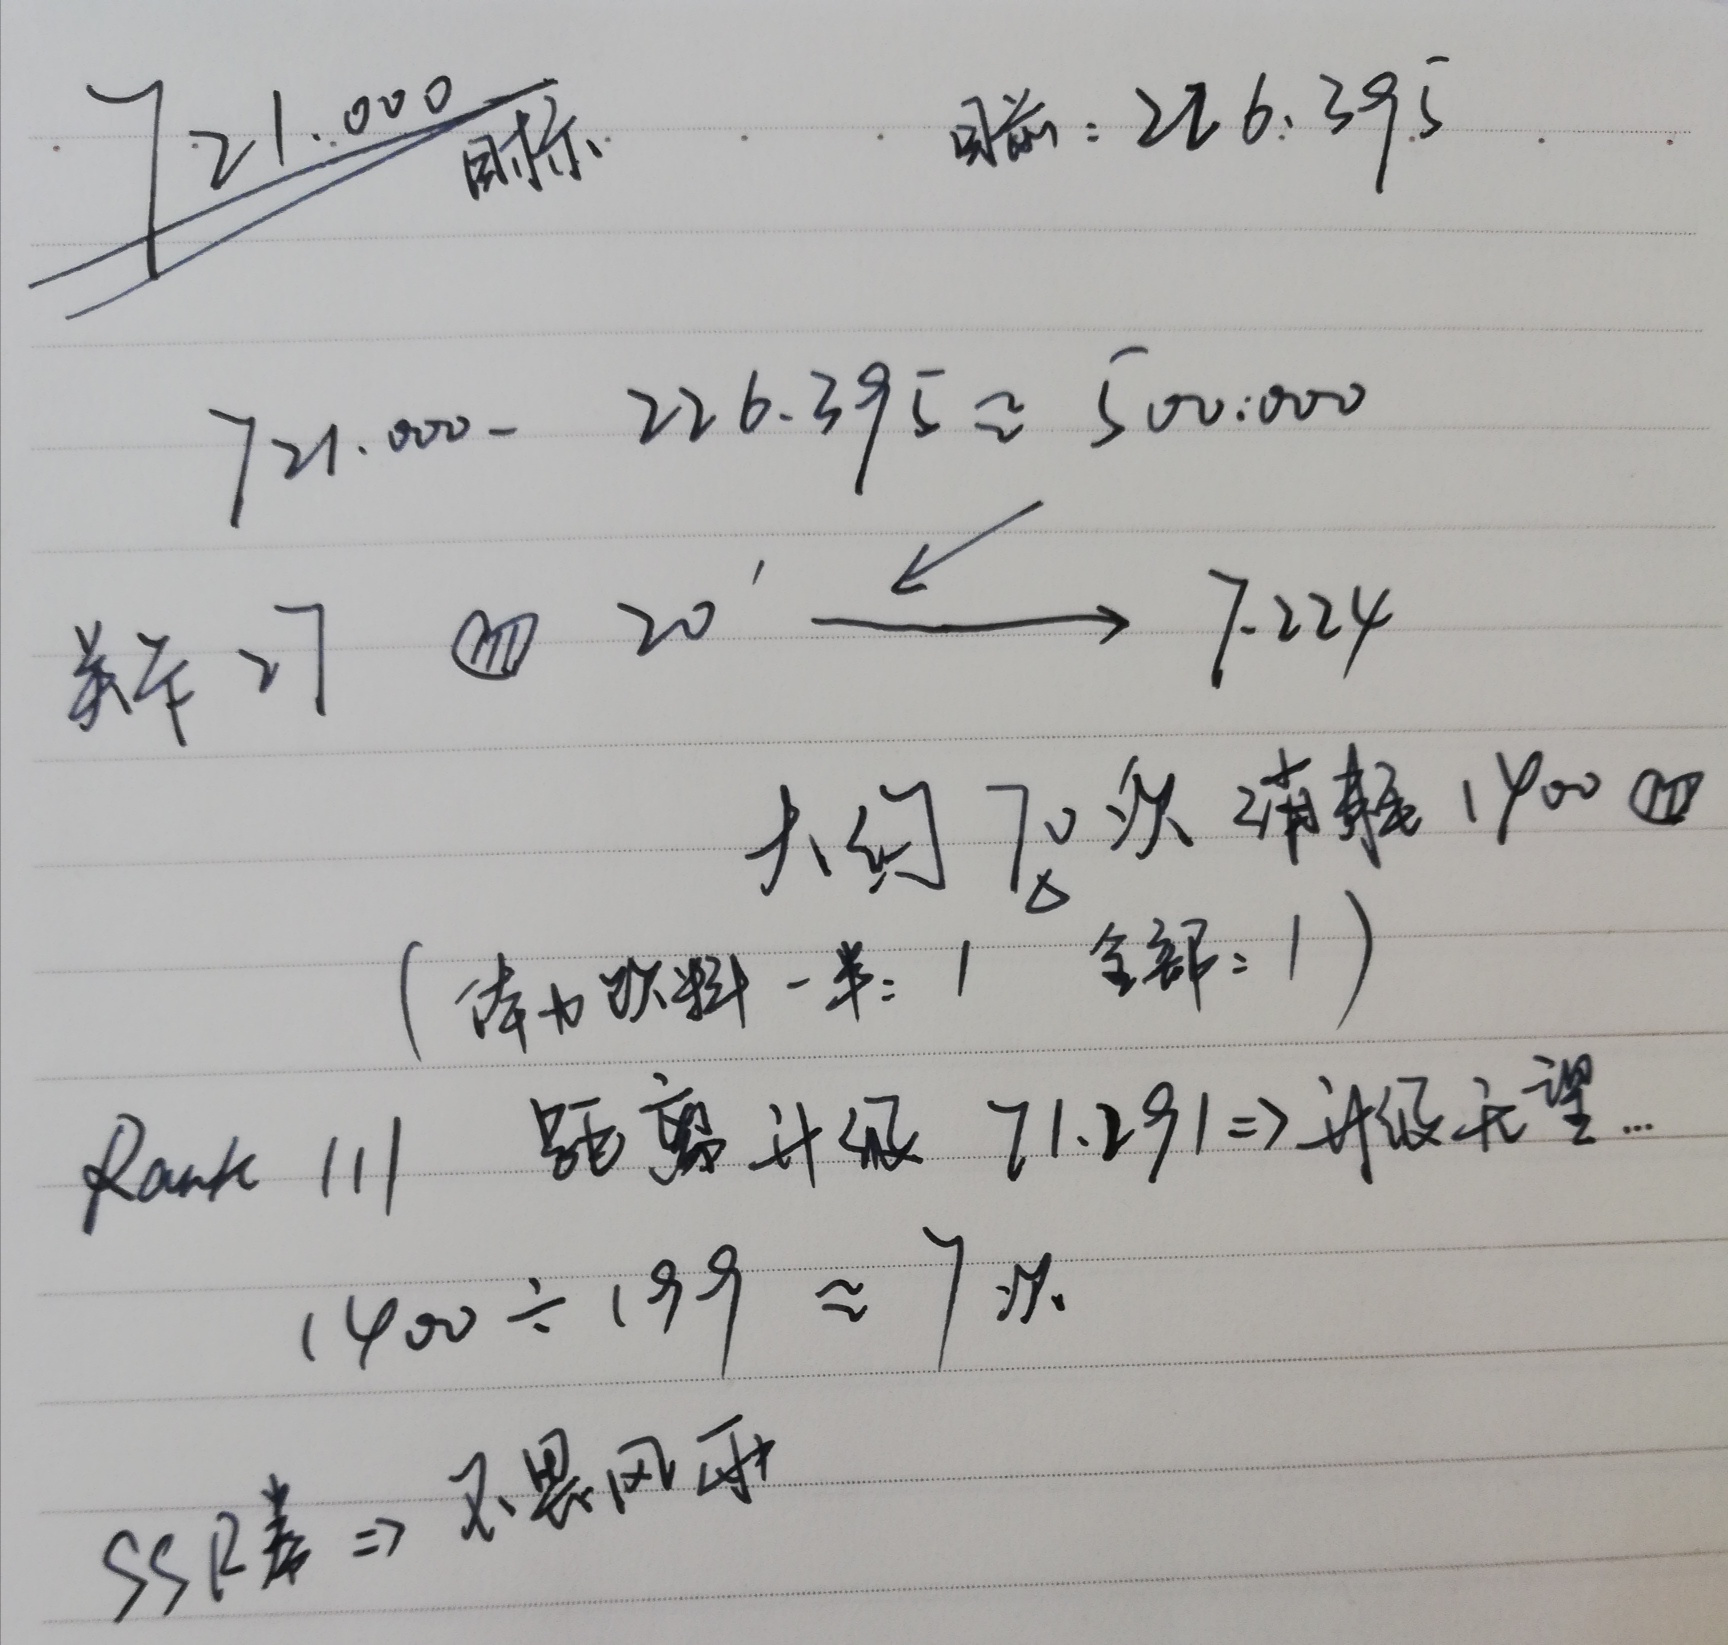 721.000 目标 目前：226.395
721.000- 226.395 ≈ 500.000
20' → 7.224
大约 70 次 消耗 1400
（体力饮料一半：1 全部：1）
Rank 111 距离升级 71.291 => 升级无望...
1400 ÷ 199 ≈ 7 次
SSR差 => 不畏风雨